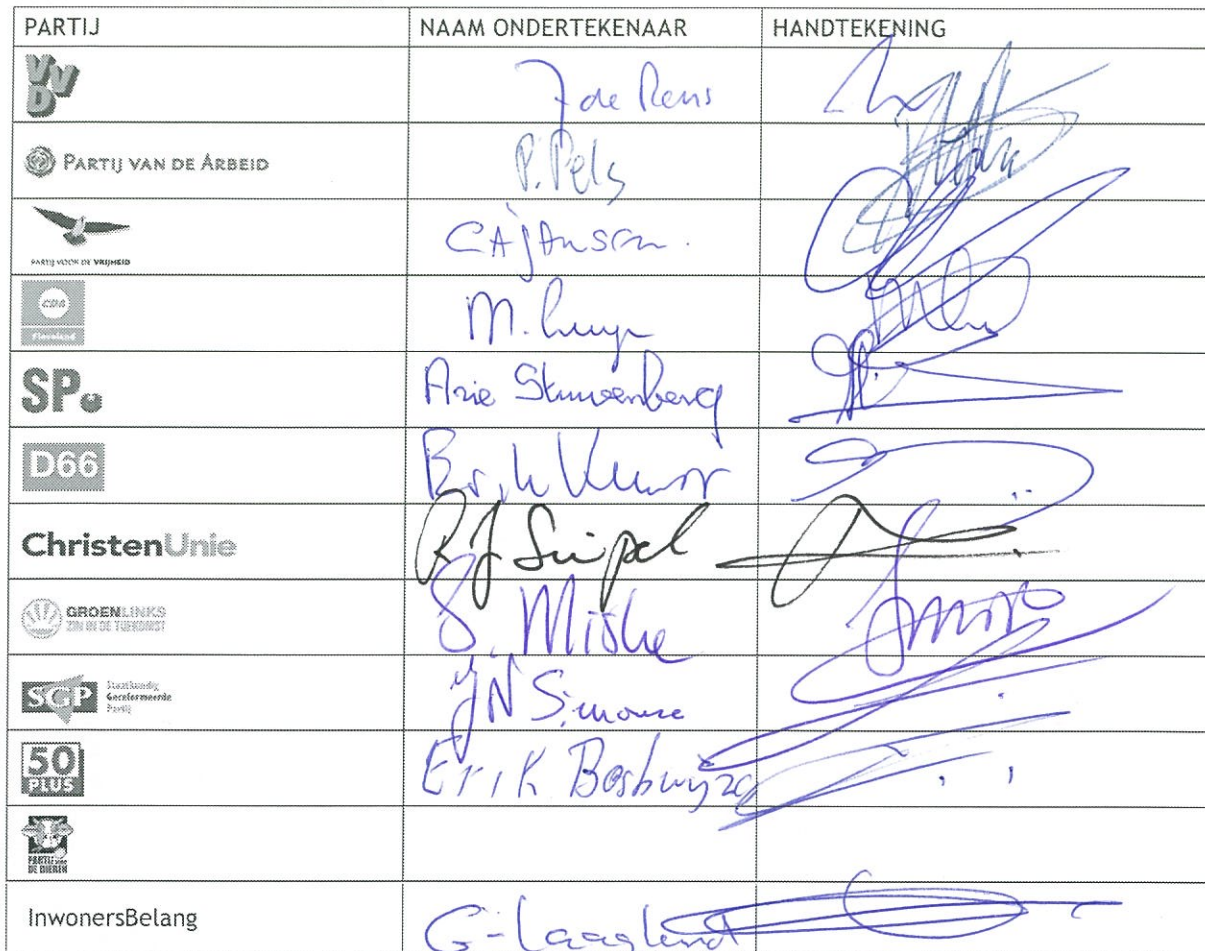 PARTIJ NAAM ONDERTEKENAAR HANDTEKENING
VVD J de Reus
PARTIJ VAN DE ARBEID P. Pels
PARTIJ VOOR DE VRIJHEID C A Jansen.
CDA Flevoland M.
SP. Arie Stuivenberg
D66
ChristenUnie R J Sijpel
GROENLINKS ZIN IN DE TOEKOMST S. Miske
SGP Staatkundig Gereformeerde Partij JN Simonse
50 PLUS Erik Boshuijzen
PARTIJ voor DE DIEREN
InwonersBelang G. Laagland